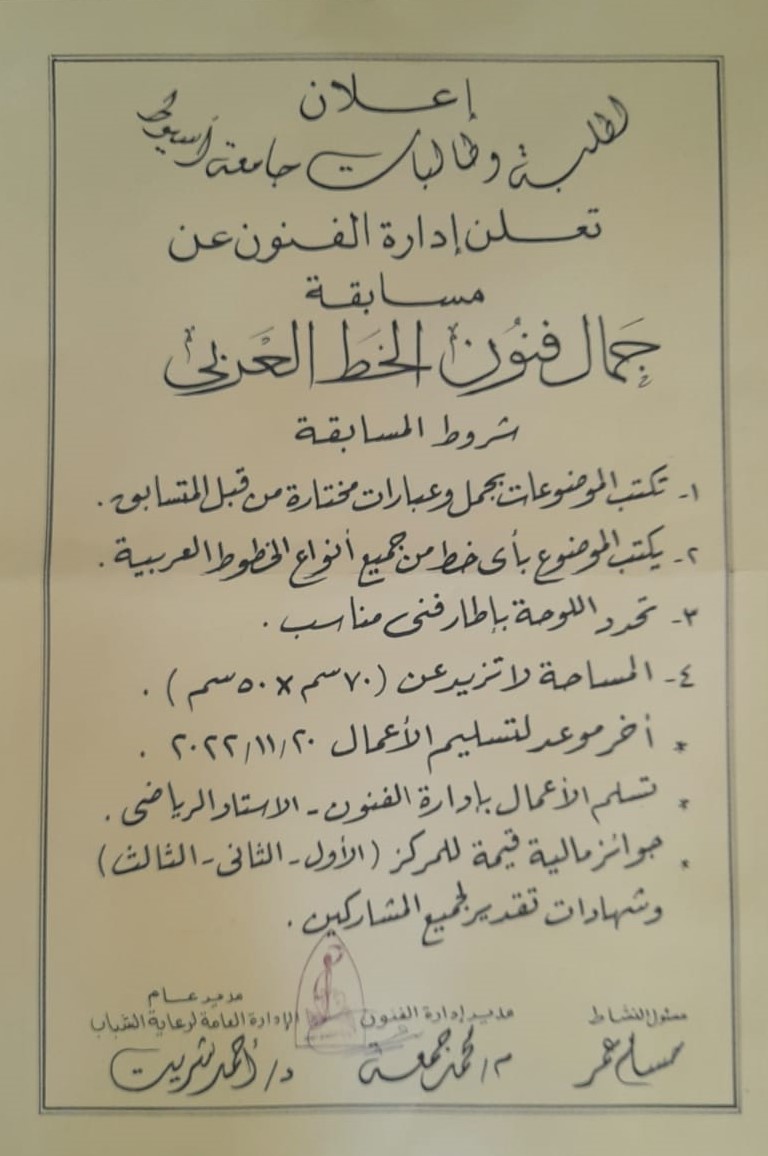 إعلان
لطلبة وطالبات جامعة أسيوط
تعلن إدارة الفنون عن
مسابقة
جَمال فنُون الخَط العَربي
شروط المسابقة
١- تكتب الموضوعات بجمل وعبارات مختارة من قبل المتسابق.
٢- يكتب الموضوع بأى خط من جميع أنواع الخطوط العربية.
٣- تحدد اللوحة بإطار فنى مناسب.
٤- المساحة لا تزيد عن (٧٠سم × ٥٠سم).
* أخر موعد لتسليم الأعمال ٢٠٢٢/١١/٢٠.
* تسلم الأعمال بإدارة الفنون - الاستاد الرياضى.
* جوائز مالية قيمة للمركز (الأول - الثانى - الثالث)
وشهادات تقدير لجميع المشاركين.
مسئول النشاط
مدير إدارة الفنون
مدير عام
الإدارة العامة لرعاية الشباب
عمر
م/ محمد جمعة
د/ أحمد شريت